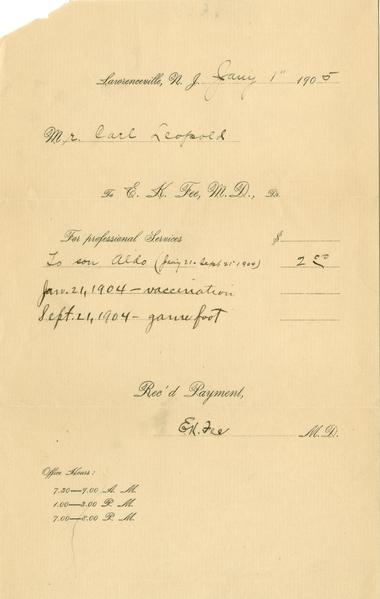 Lawrenceville, N. J. Jany 1" 1905
Mr. Carl Leopold
To E. K. Fee, M. D., Dr.
For professional Services $
To son Aldo (Jany 21 - Sept 21" 1904) 2 00
Jan. 21, 1904 - vaccination
Sept. 21, 1904 - game foot
Rec'd Payment,
E.K. Fee M. D.
Office Hours:
7.30—9.00 A. M.
1.00—3.00 P. M.
7.00—8.00 P. M.